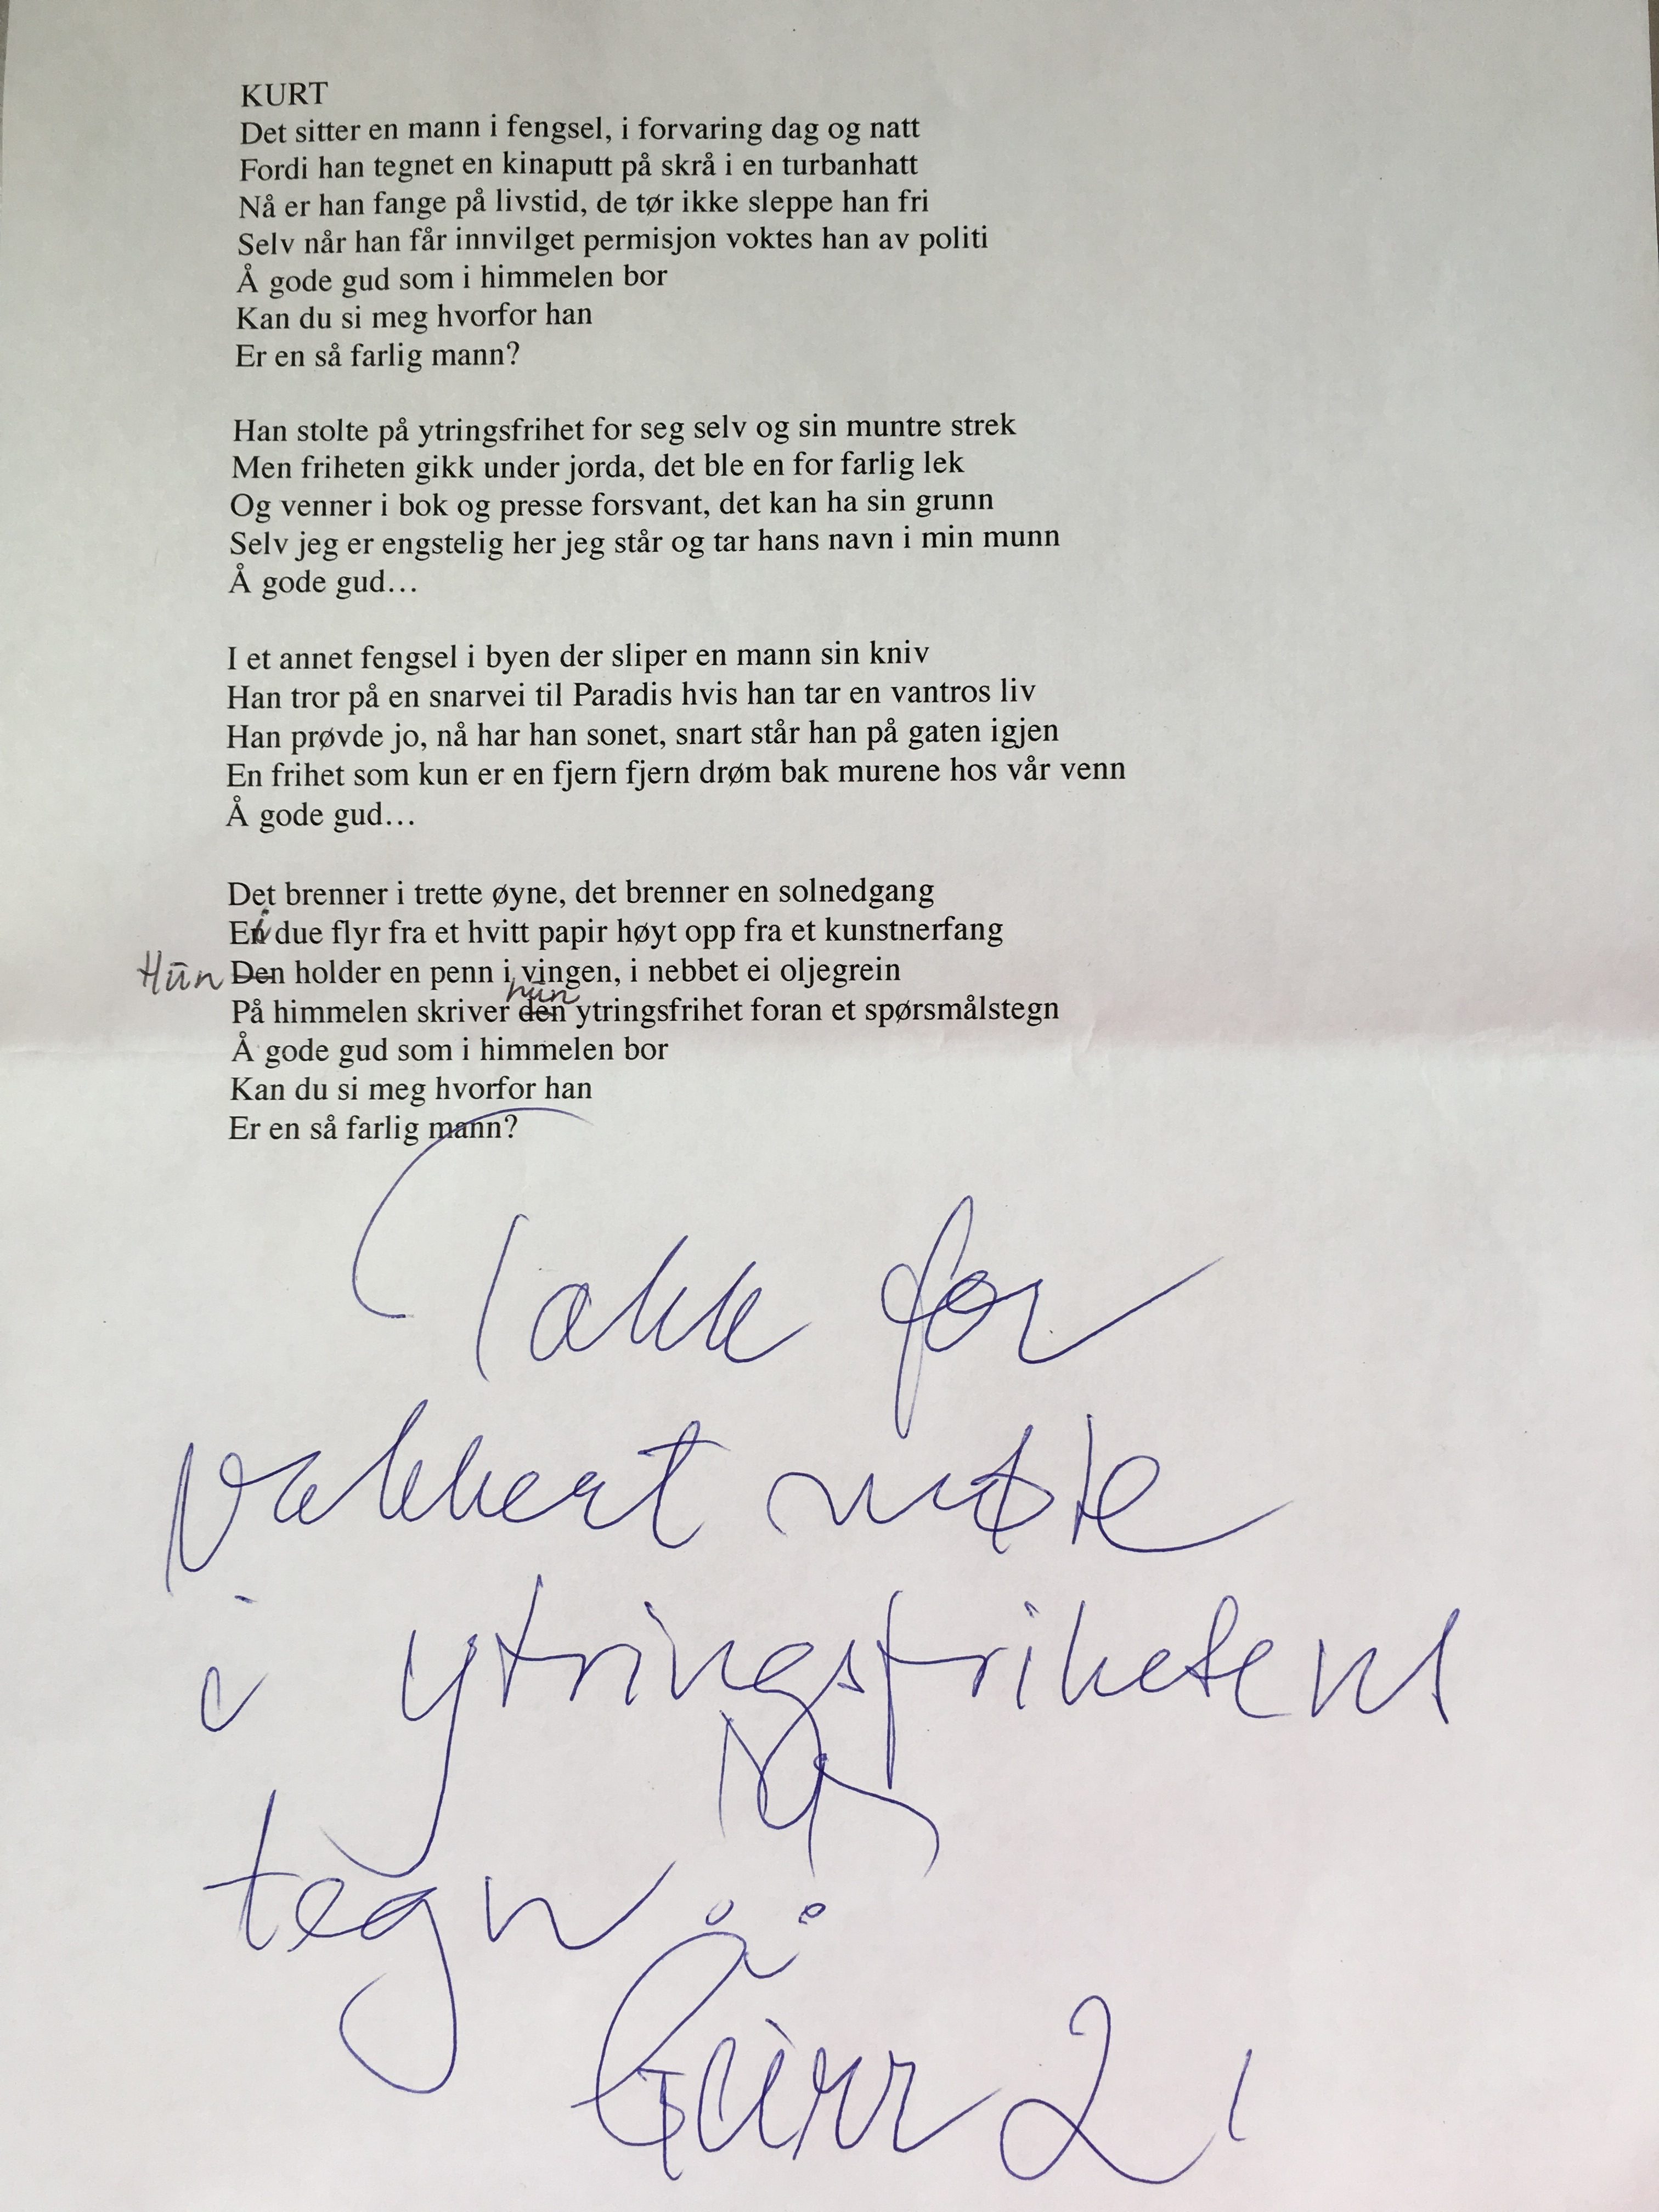 KURT
Det sitter en mann i fengsel, i forvaring dag og natt
Fordi han tegnet en kinaputt på skrå i en turbanhatt
Nå er han fange på livstid, de tør ikke sleppe han fri
Selv når han får innvilget permisjon voktes han av politi
Å gode gud som i himmelen bor
Kan du si meg hvorfor han
Er en så farlig mann?
Han stolte på ytringsfrihet for seg selv og sin muntre strek
Men friheten gikk under jorda, det ble en for farlig lek
Og venner i bok og presse forsvant, det kan ha sin grunn
Selv jeg er engstelig her jeg står og tar hans navn i min munn
Å gode gud…
I et annet fengsel i byen der sliper en mann sin kniv
Han tror på en snarvei til Paradis hvis han tar en vantros liv
Han prøvde jo, nå har han sonet, snart står han på gaten igjen
En frihet som kun er en fjern fjern drøm bak murene hos vår venn
Å gode gud…
Det brenner i trette øyne, det brenner en solnedgang
Ei due flyr fra et hvitt papir høyt opp fra et kunstnerfang
Hun Den holder en penn i vingen, i nebbet ei oljegrein
hun
På himmelen skriver den ytringsfrihet foran et spørsmålstegn
Å gode gud som i himmelen bor
Kan du si meg hvorfor han
Er en så farlig mann?
Takk for
vakkert møte
i ytringsfrihetens
tegn